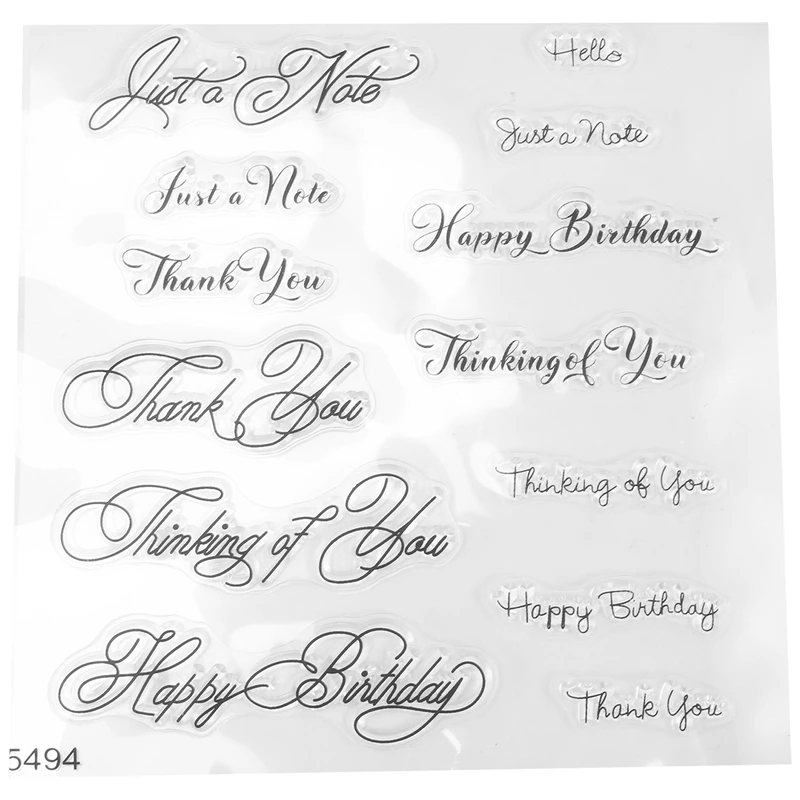 Just a Note
Just a Note
Thank You
Thank You
Thinking of You
Happy Birthday
5494
Hello
Just a Note
Happy Birthday
Thinking of You
Thinking of You
Happy Birthday
Thank You